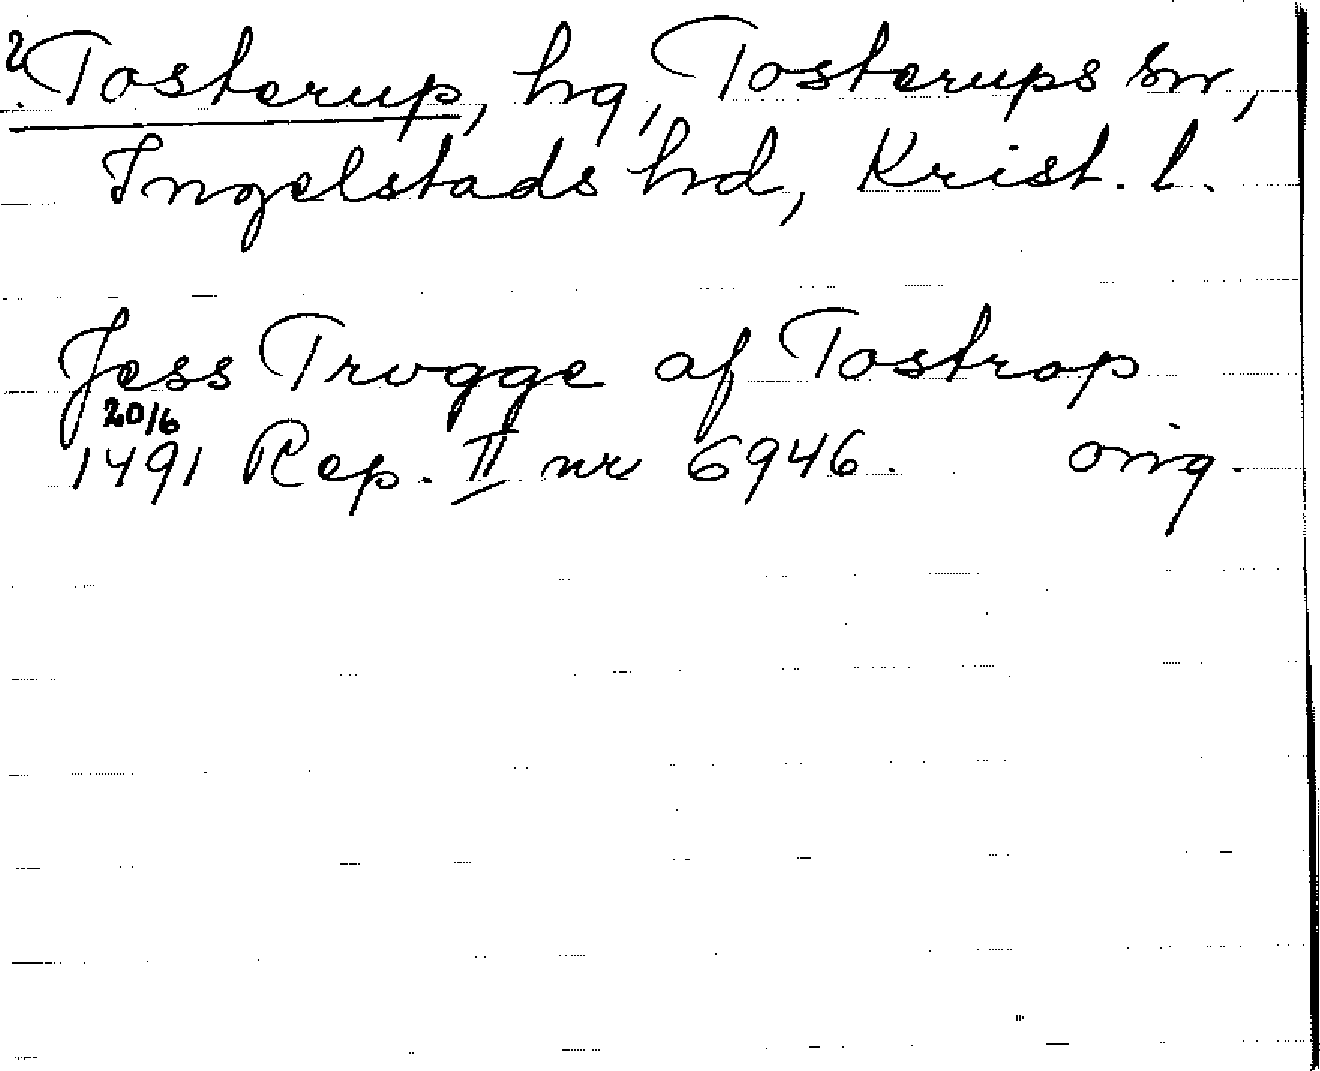 ? Tosterup, hg, Tosterups sn,
Ingelstads hd, Krist. l.
Jess Trvgge af Tostrop
20/6
1491 Rep. II nr 6946. orig.